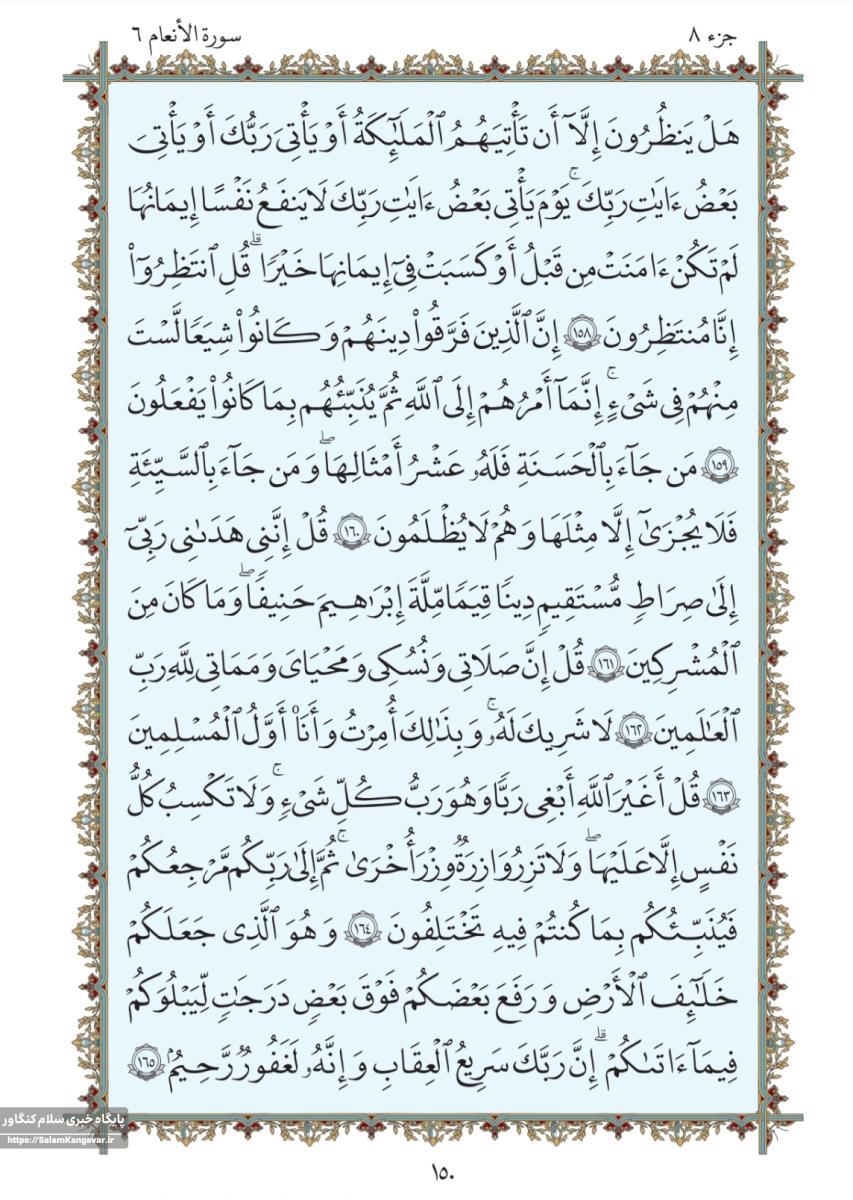 جزء ٨
سورة الأنعام ٦
هَلۡ يَنظُرُونَ إِلَّآ أَن تَأۡتِيَهُمُ ٱلۡمَلَٰٓئِكَةُ أَوۡ يَأۡتِيَ رَبُّكَ أَوۡ يَأۡتِيَ
بَعۡضُ ءَايَٰتِ رَبِّكَۚ يَوۡمَ يَأۡتِي بَعۡضُ ءَايَٰتِ رَبِّكَ لَا يَنفَعُ نَفۡسًا إِيمَٰنُهَا
لَمۡ تَكُنۡ ءَامَنَتۡ مِن قَبۡلُ أَوۡ كَسَبَتۡ فِيٓ إِيمَٰنِهَا خَيۡرٗاۗ قُلِ ٱنتَظِرُوٓاْ
إِنَّا مُنتَظِرُونَ ١٥٨ إِنَّ ٱلَّذِينَ فَرَّقُواْ دِينَهُمۡ وَكَانُواْ شِيَعٗا لَّسۡتَ
مِنۡهُمۡ فِي شَيۡءٍۚ إِنَّمَآ أَمۡرُهُمۡ إِلَى ٱللَّهِ ثُمَّ يُنَبِّئُهُم بِمَا كَانُواْ يَفۡعَلُونَ
١٥٩ مَن جَآءَ بِٱلۡحَسَنَةِ فَلَهُۥ عَشۡرُ أَمۡثَالِهَاۖ وَمَن جَآءَ بِٱلسَّيِّئَةِ
فَلَا يُجۡزَىٰٓ إِلَّا مِثۡلَهَا وَهُمۡ لَا يُظۡلَمُونَ ١٦٠ قُلۡ إِنَّنِي هَدَىٰنِي رَبِّيٓ
إِلَىٰ صِرَٰطٖ مُّسۡتَقِيمٖ دِينٗا قِيَمٗا مِّلَّةَ إِبۡرَٰهِيمَ حَنِيفٗاۖ وَمَا كَانَ مِنَ
ٱلۡمُشۡرِكِينَ ١٦١ قُلۡ إِنَّ صَلَاتِي وَنُسُكِي وَمَحۡيَايَ وَمَمَاتِي لِلَّهِ رَبِّ
ٱلۡعَٰلَمِينَ ١٦٢ لَا شَرِيكَ لَهُۥۚ وَبِذَٰلِكَ أُمِرۡتُ وَأَنَا۠ أَوَّلُ ٱلۡمُسۡلِمِينَ
١٦٣ قُلۡ أَغَيۡرَ ٱللَّهِ أَبۡغِي رَبّٗا وَهُوَ رَبُّ كُلِّ شَيۡءٖۚ وَلَا تَكۡسِبُ كُلُّ
نَفۡسٍ إِلَّا عَلَيۡهَاۖ وَلَا تَزِرُ وَازِرَةٞ وِزۡرَ أُخۡرَىٰۚ ثُمَّ إِلَىٰ رَبِّكُم مَّرۡجِعُكُمۡ
فَيُنَبِّئُكُم بِمَا كُنتُمۡ فِيهِ تَخۡتَلِفُونَ ١٦٤ وَهُوَ ٱلَّذِي جَعَلَكُمۡ
خَلَٰٓئِفَ ٱلۡأَرۡضِ وَرَفَعَ بَعۡضَكُمۡ فَوۡقَ بَعۡضٖ دَرَجَٰتٖ لِّيَبۡلُوَكُمۡ
فِي مَآ ءَاتَىٰكُمۡۗ إِنَّ رَبَّكَ سَرِيعُ ٱلۡعِقَابِ وَإِنَّهُۥ لَغَفُورٞ رَّحِيمُۢ ١٦٥
پایگاه خبری سلام کنگاور
https://SalamKangavar.ir
١٥٠